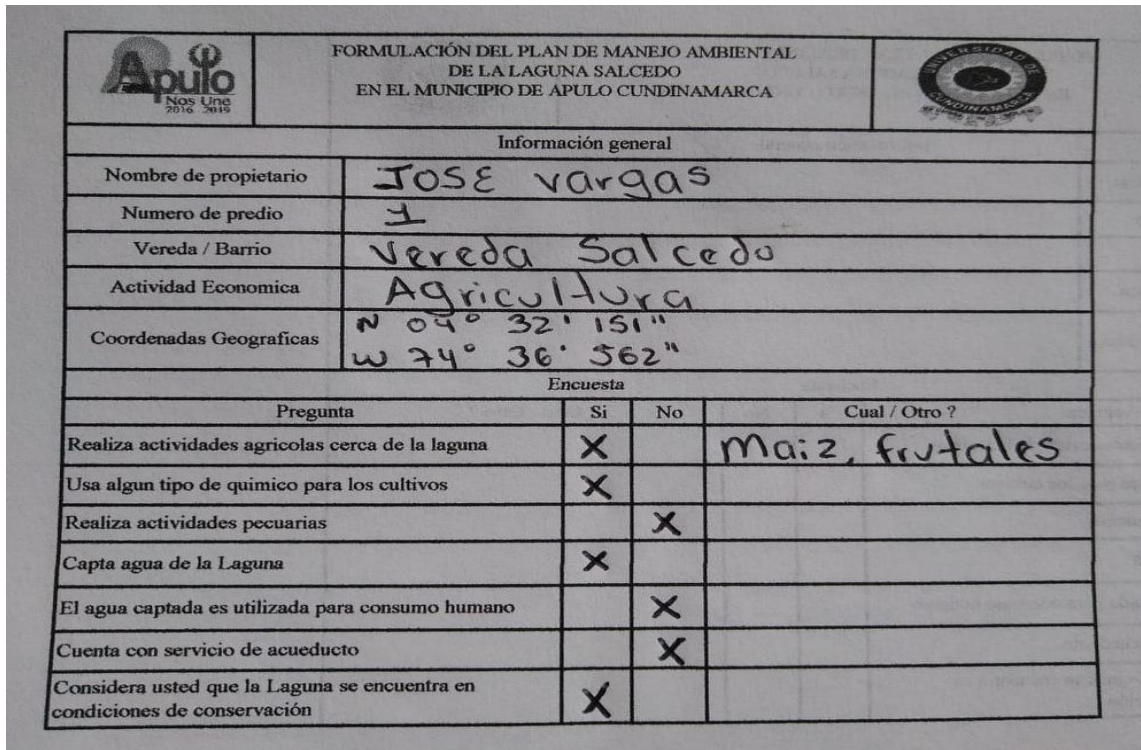 Apulo
Nos Une
2016 - 2019
FORMULACIÓN DEL PLAN DE MANEJO AMBIENTAL
DE LA LAGUNA SALCEDO
EN EL MUNICIPIO DE APULO CUNDINAMARCA
UNIVERSIDAD DE CUNDINAMARCA
Información general
Nombre de propietario JOSE vargas
Numero de predio 1
Vereda / Barrio Vereda Salcedo
Actividad Economica Agricultura
Coordenadas Geograficas N 04° 32' 151"
W 74° 36' 562"
Encuesta
Pregunta Si No Cual / Otro ?
Realiza actividades agricolas cerca de la laguna X Maiz, frutales
Usa algun tipo de quimico para los cultivos X
Realiza actividades pecuarias X
Capta agua de la Laguna X
El agua captada es utilizada para consumo humano X
Cuenta con servicio de acueducto X
Considera usted que la Laguna se encuentra en
condiciones de conservación X